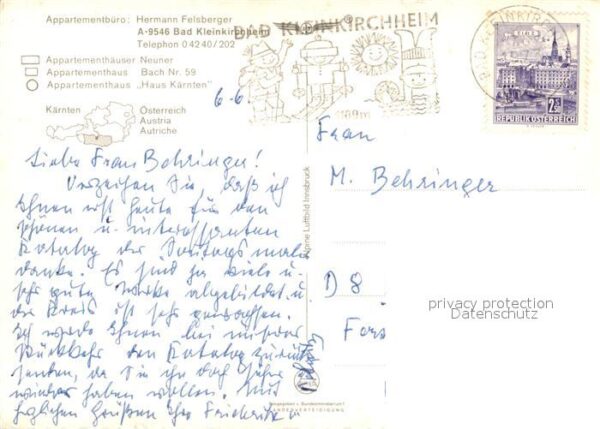 Appartementbüro: Hermann Felsberger
A-9546 Bad Kleinkirchheim
Telephon 0 42 40 / 202
Appartementhäuser Neuner
Appartementhaus Bach Nr. 59
Appartementhaus "Haus Kärnten"
Kärnten
Österreich
Austria
Autriche
BAD KLEINKIRCHHEIM
2 S
REPUBLIK ÖSTERREICH
6.6.
Liebe Frau Behringer!
Verzeihen Sie, daß ich
Ihnen erst heute für den
schönen u. interessanten
Katalog der Sonntagsmaler
danke. Es sind ja viele u.
sehr gute Werke abgebildet u.
der Kreis ist sehr gewachsen.
Ich werde Ihnen bei meiner
Rückkehr den Katalog zurück
senden, da Sie ihn doch sicher
wieder haben wollen. Mit
herzlichen Grüßen Ihre
Alpine Luftbild Innsbruck
Frau
M. Behringer
D 8
Fors
privacy protection
Datenschutz
LANDESVERTEIDIGUNG